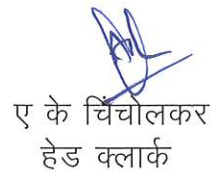 ए के चिंचोलकर
हेड क्लार्क